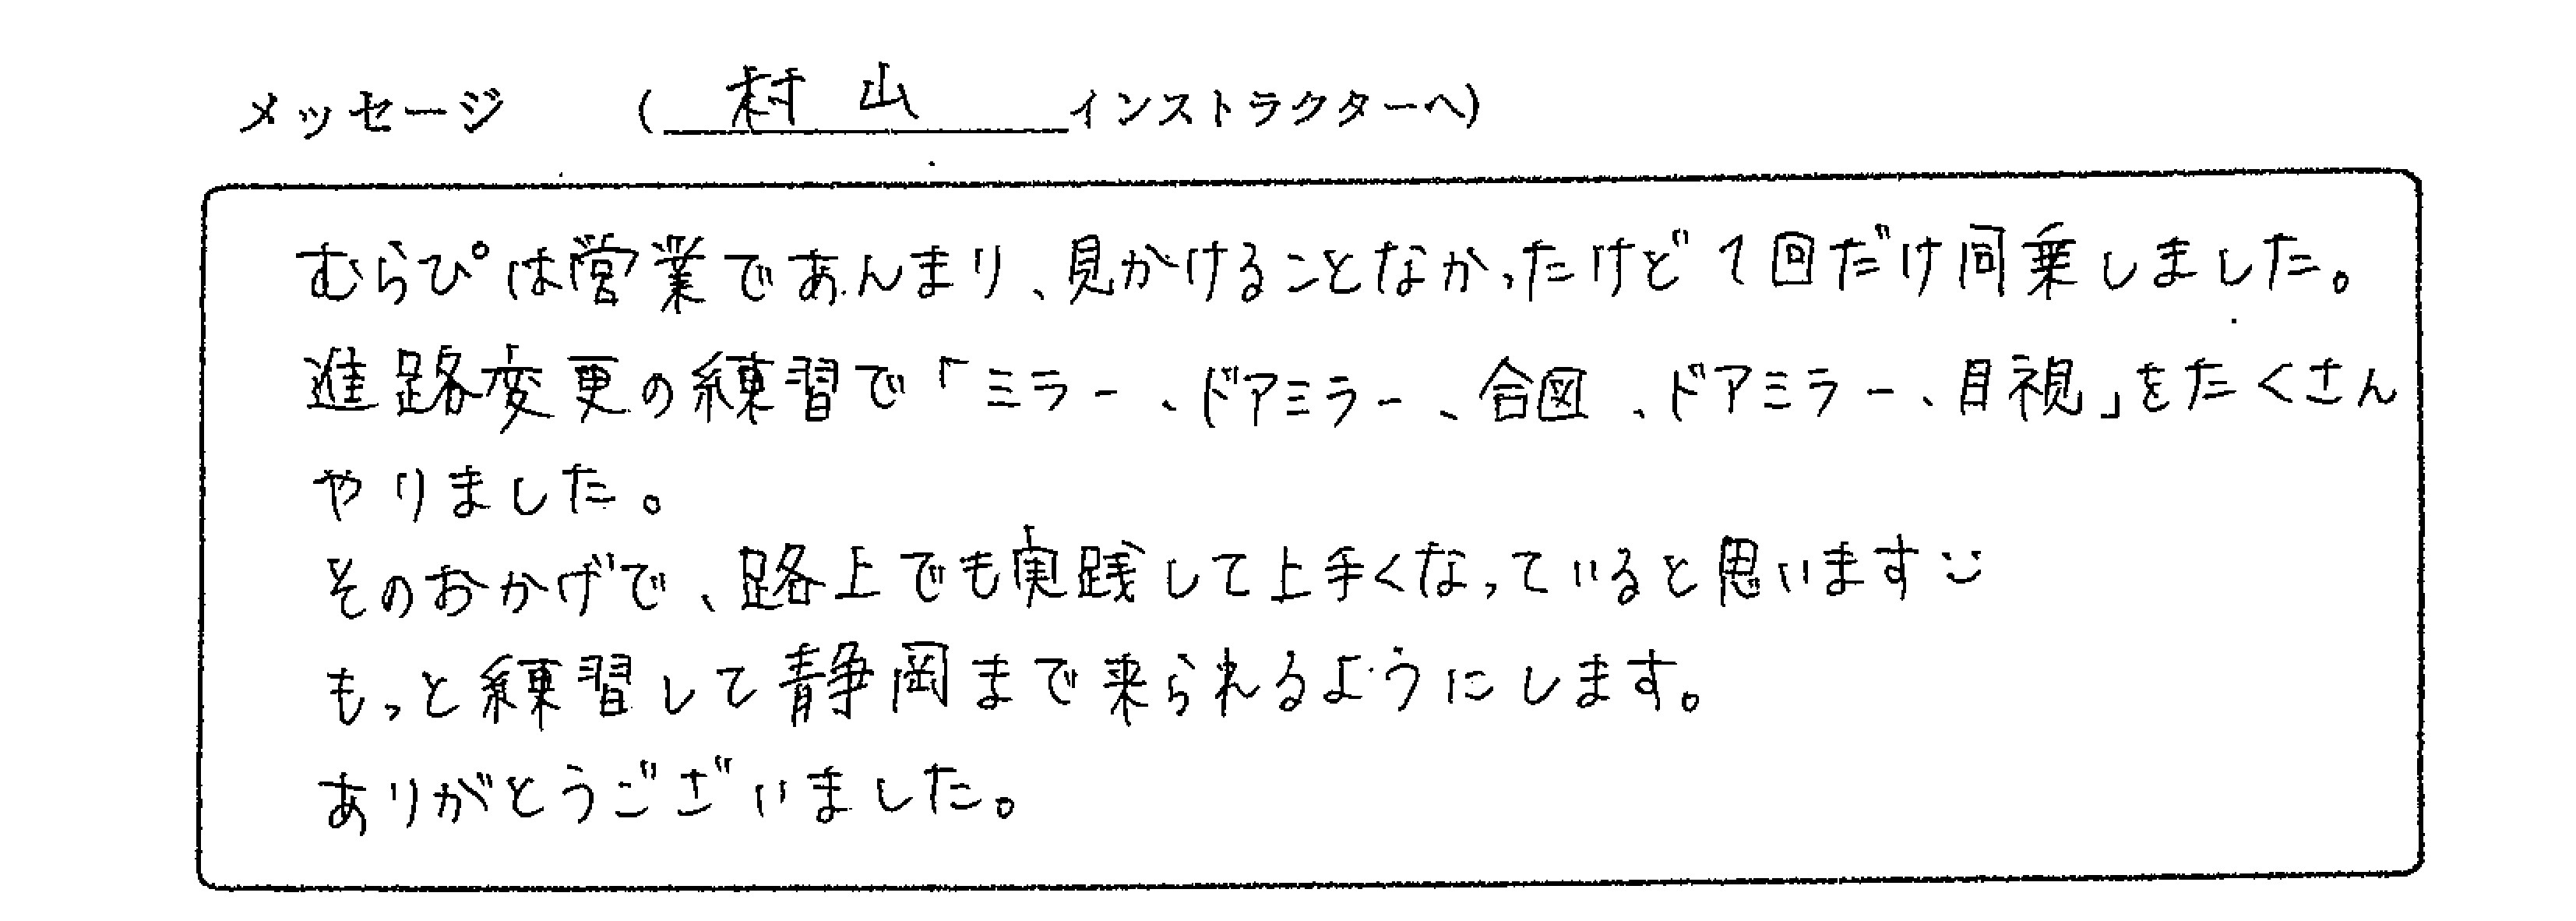 メッセージ （村山インストラクターへ）
むらぴは営業であんまり、見かけることなかったけど1回だけ同乗しました。
進路変更の練習で「ミラー、ドアミラー、合図、ドアミラー、目視」をたくさん
やりました。
そのおかげで、路上でも実践して上手くなっていると思います
もっと練習して静岡まで来られるようにします。
ありがとうございました。